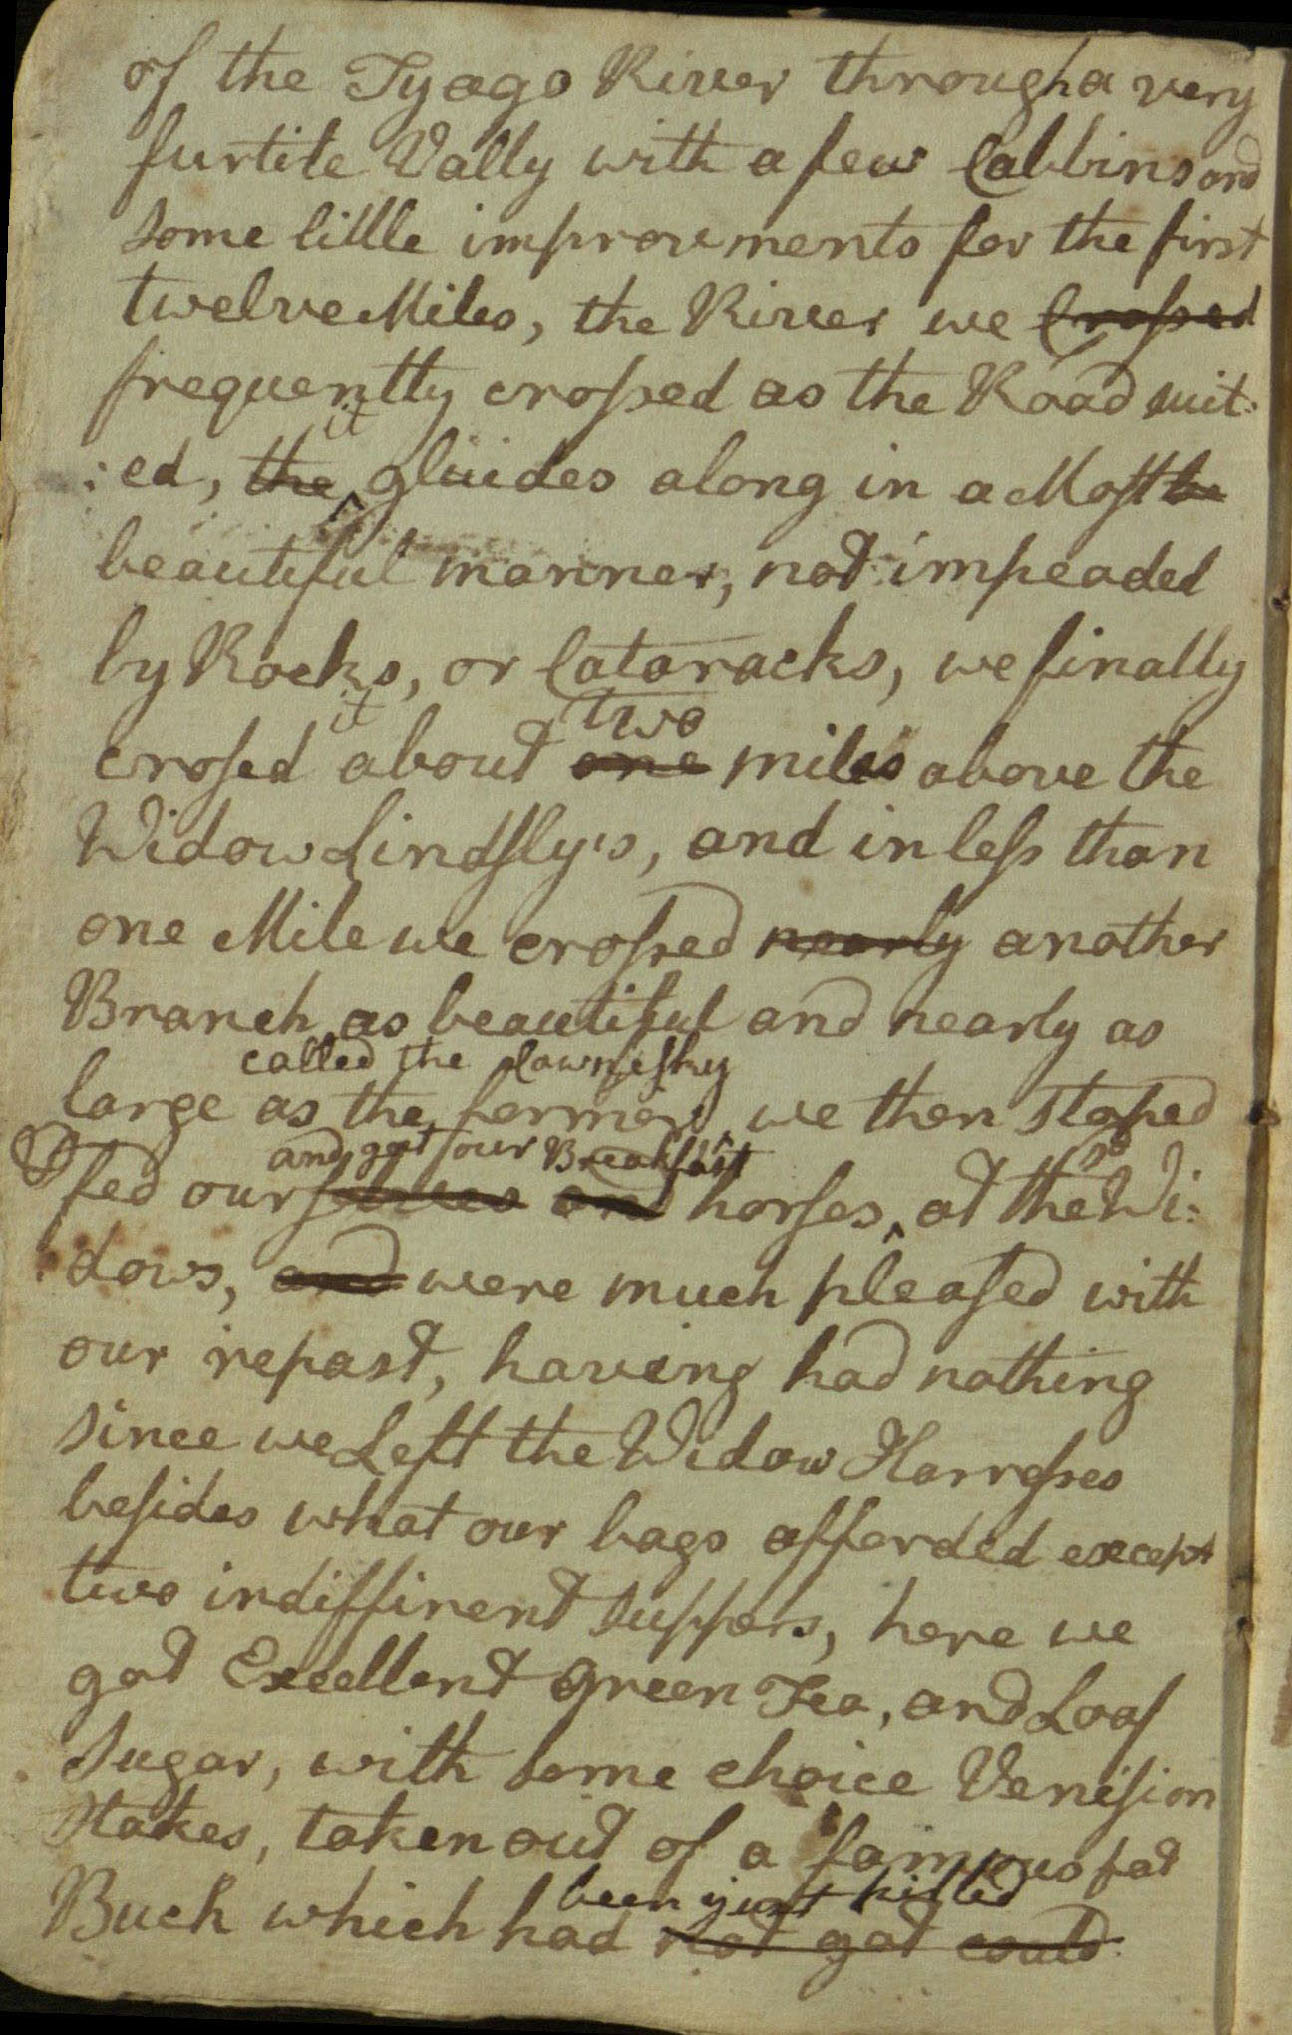 of the Tyago River through a very
furtile Vally with a few Cabbins and
some little improvements for the first
twelve Miles, the River we Crossed
frequently crossed as the Road suit:
it
:ed, the gluides along in a Most be
beautiful manner, not impeaded
by Rocks, or Cataracks, we finally
it two
crosed about one miles above the
Widow Lindsly's, and in less than
one Mile we crossed nearly another
Branch as beautiful and nearly as
called the
large as the former, we then stoped
and got our Breakfast
fed ourselves and horses, at the Wi:
dows, and were much pleased with
our repast, having had nothing
since we Left the Widow Harresses
besides what our bags afforded except
two indiffirent suppers, here we
got Excellent green Tea, and Loaf
Sugar, with some choice Venision
Stakes, taken out of a fampus fat
been just killed
Buck which had not got could